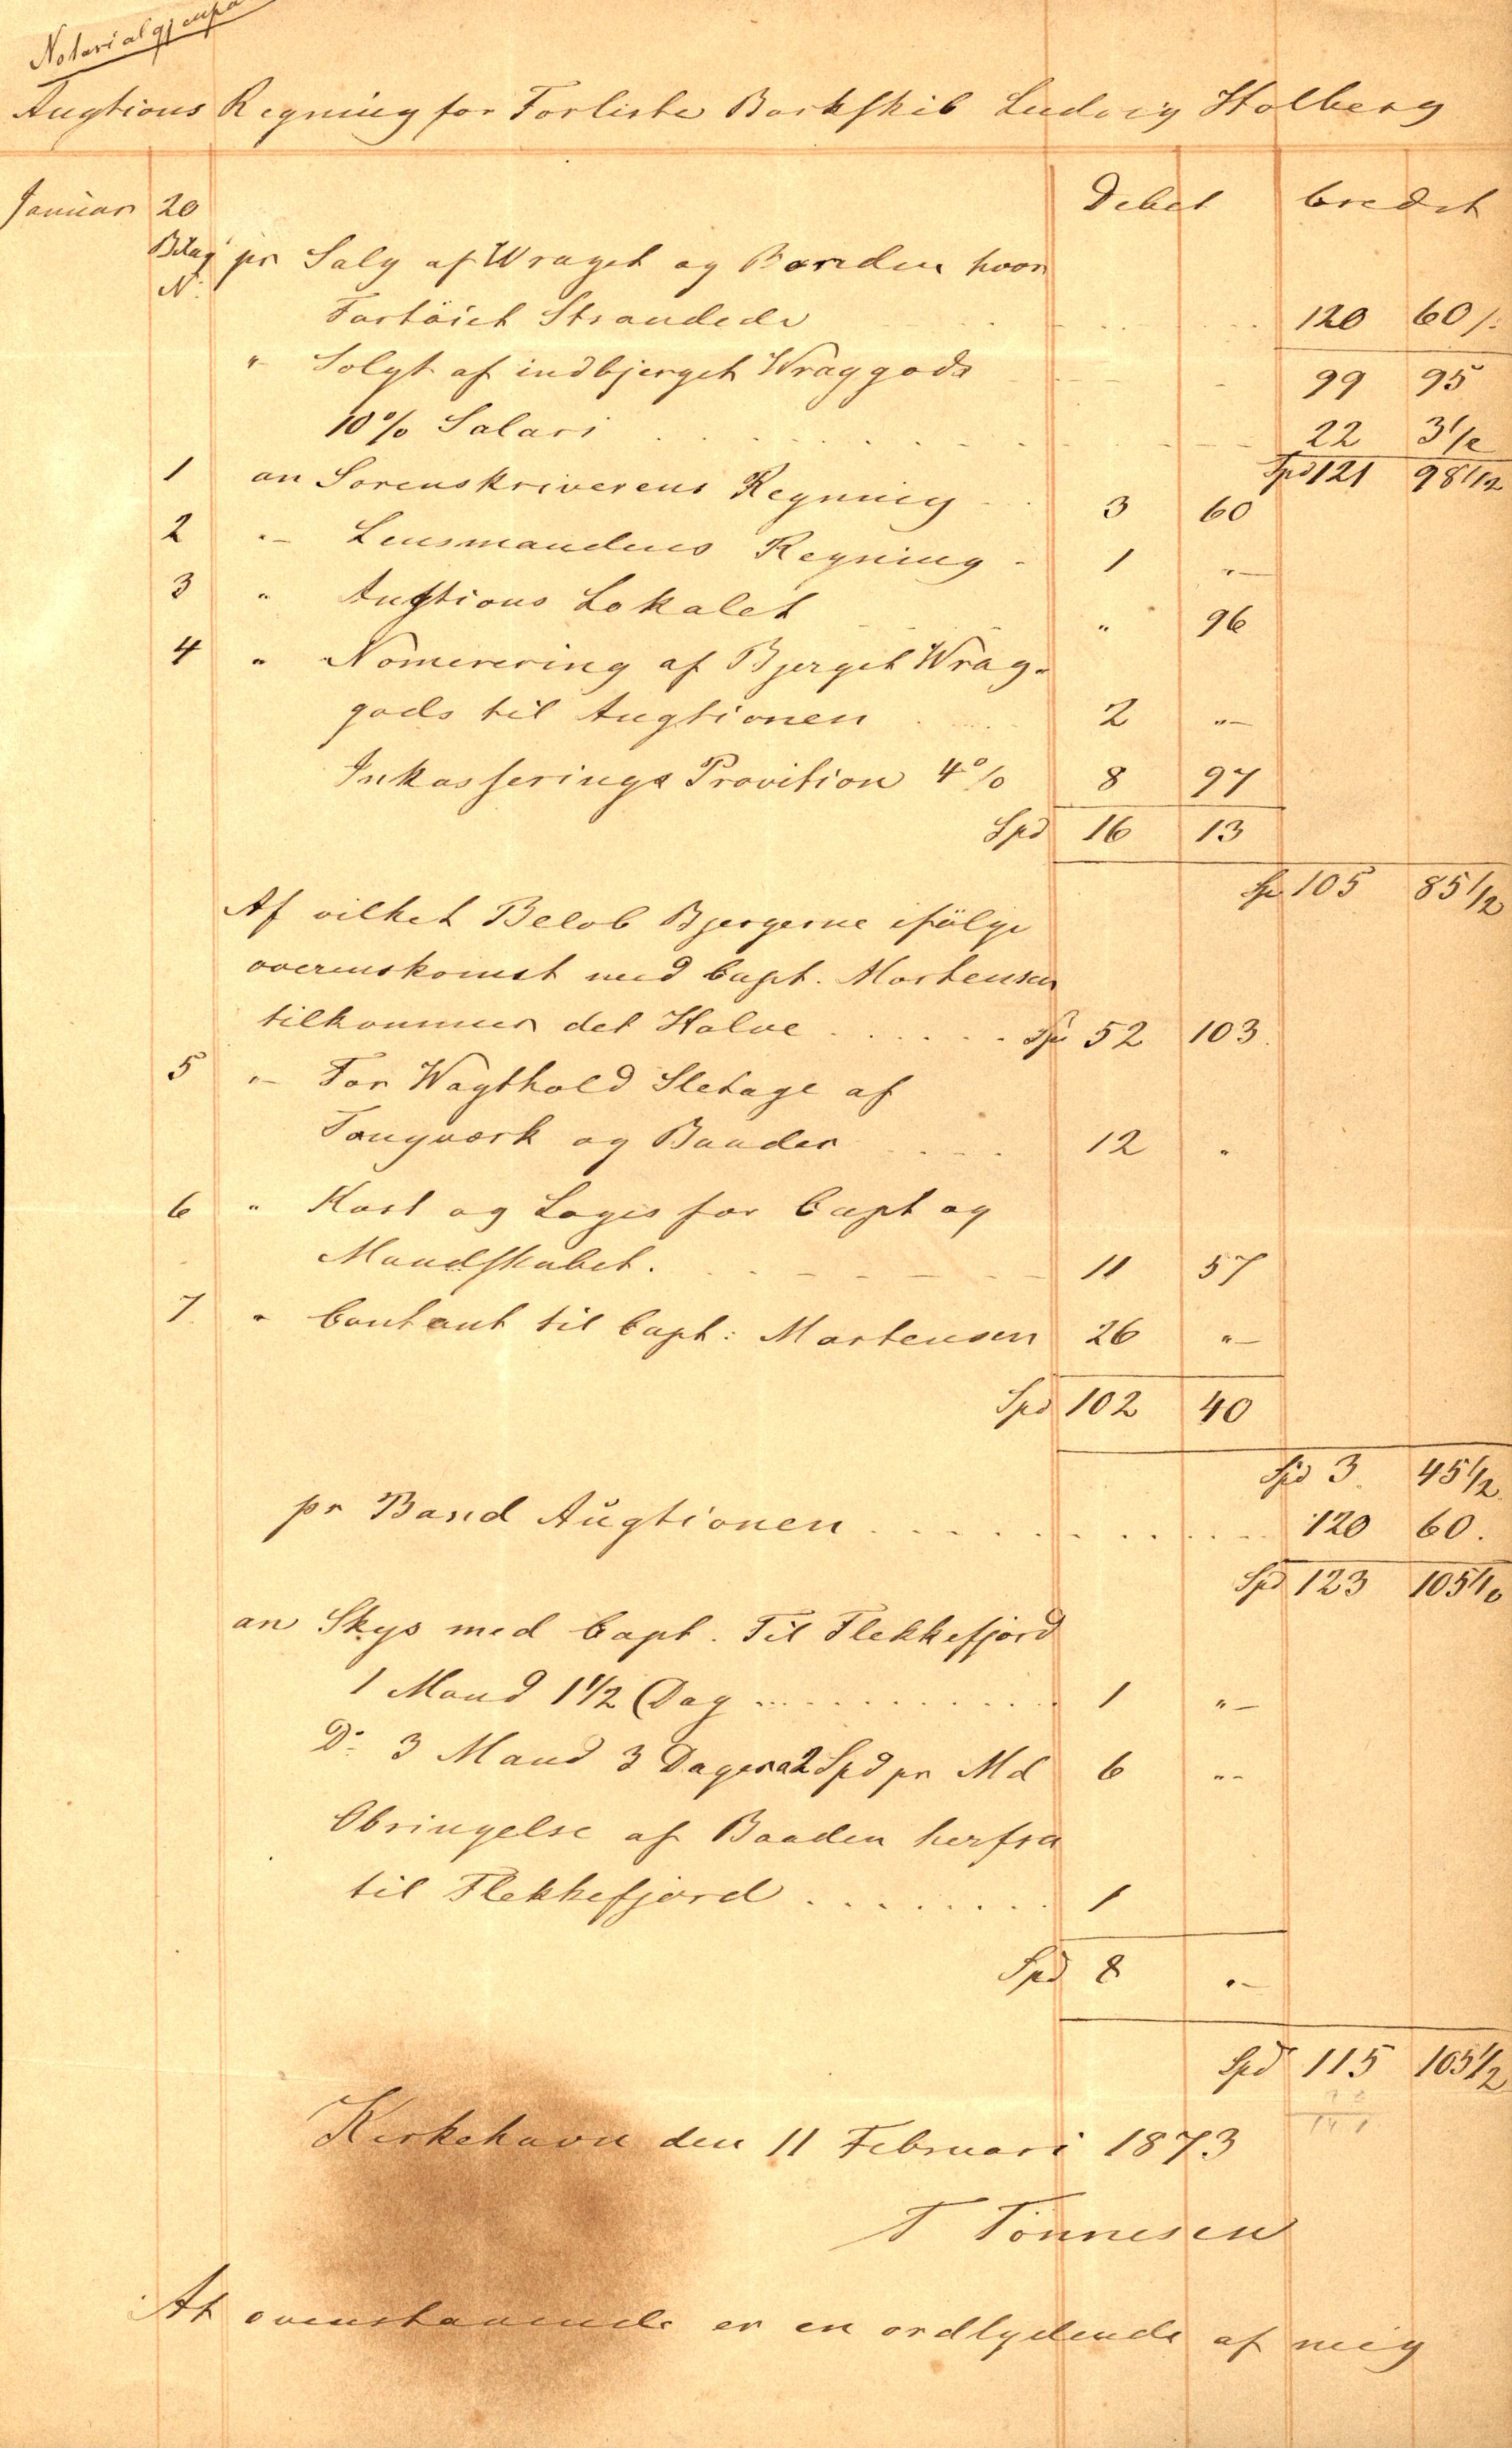 Notarialgjenpa
Augtions Regning for Forliste Barkskib Ludvig Holberg
Januar 20 Debet Credet
Bilag N: pr Salg af Wraget og Banden hvor
Fartöiet Strandede 120 60/:
"- Solgt af indbjerget Wraggods 99 95
10% Salari 22 3 1/2
Spd 121 98 1/2
1 an Sorenskriverens Regning 3 60
2 "- Lensmandens Regning - 1 "-
3 " Augtions Lokalet " 96
4 " Nomerering af Bjerget Wrag-
gods til Augtionen 2 "-
Inkasserings Provition 4% 8 97
Spd 16 13
Sp 105 85 1/2
Af vilket Belob Bjergerne ifölge
overenskomst med Capt. Mortensen
tilkommer det Halve Sp 52 103
5 "- For Wagthold Sletage af
Tougværk og Baader 12 "
6 " Kost og Logis for Capt og
Mandskabet. 11 57
7. " Contant til Capt: Mortensen 26 "-
Spd 102 40
Spd 3. 45 1/2
pr Band Augtionen 120 60.
Spd 123 105 1/2
an Skys med Capt. Til Flekkefjord
1 Mand 1 1/2 Dag 1 "-
Do 3 Mand 3 Dager a 2 Spd pr Md 6 "-
Obringelse af Baaden herfra
til Flekkefjord 1
Spd 8 "-
Spd 115 105 1/2
Kirkehavn den 11 Februari 1873
T Tönnesen
At ovenstaaende er en ordlydende af mig